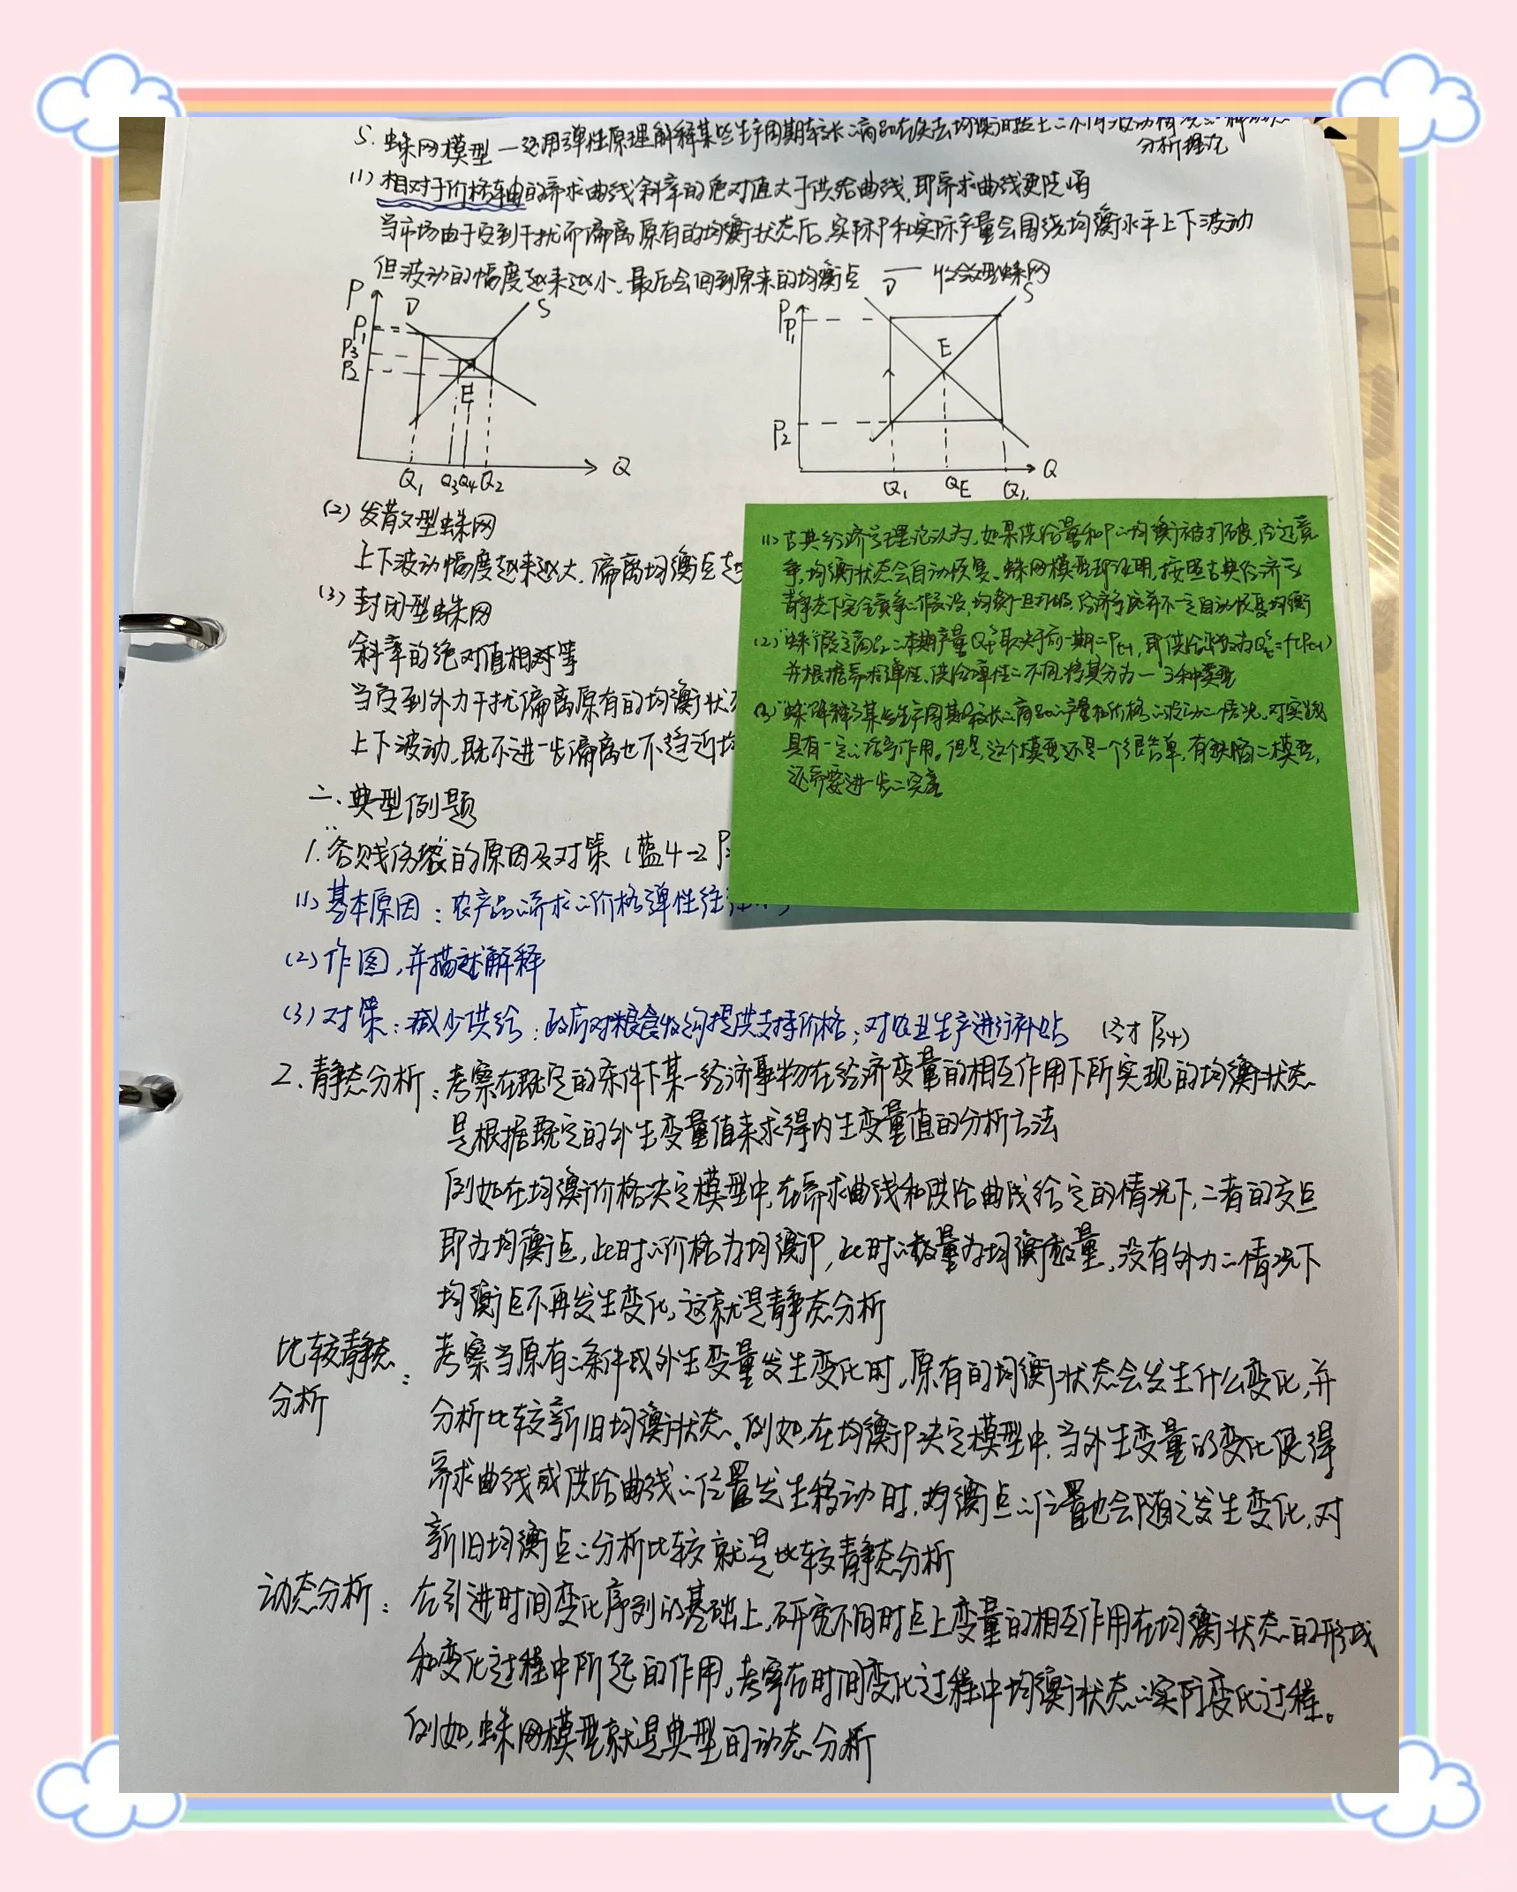 5. 蛛网模型 — 运用弹性原理解释某些生产周期较长的商品在失去均衡时发生的不同波动情况的一种动态
分析理论
(1) 相对于价格轴的需求曲线斜率的绝对值大于供给曲线,即需求曲线更陡峭
当市场由于受到干扰而偏离原有的均衡状态后,实际P和实际产量会围绕均衡水平上下波动
但波动的幅度越来越小,最后会回到原来的均衡点 — 收敛型蛛网
P D S
P1
P3
P2
E
Q1 Q3 Q4 Q2 Q
P D S
P1
E
P2
Q1 QE Q2 Q
(2) 发散型蛛网
上下波动幅度越来越大,偏离均衡点越
(3) 封闭型蛛网
斜率的绝对值相对等
当受到外力干扰偏离原有的均衡状态
上下波动,既不进一步偏离也不趋近均
(1) 古典经济学理论认为,如果供给量和P的均衡被打破,经过竞
争,均衡状态会自动恢复。蛛网模型却证明,按照古典经济学
静态下完全竞争的假设,均衡一旦打破,经济系统并不一定自动恢复均衡
(2) 蛛假定商品的本期产量Qts取决于前一期的Pt-1,即供给函数为Qts=f(Pt-1)
并根据需求弹性、供给弹性的不同将其分为一 3种类型
(3) 蛛解释了某些生产周期较长的商品的产量和价格的波动的情况,对实践
具有一定的指导作用。但是,这个模型还是一个很简单,有缺陷的模型,
还需要进一步的完善
二、典型例题
1. 谷贱伤农的原因及对策 (蓝4-2 P
(1) 基本原因:农产品的需求的价格弹性往往
(2) 作图,并描述解释
(3) 对策:减少供给;政府对粮食收购提供支持价格;对农业生产进行补贴 (圣才 P34)
2. 静态分析:考察在既定的条件下某一经济事物在经济变量的相互作用下所实现的均衡状态
是根据既定的外生变量值来求得内生变量值的分析方法
例如在均衡价格决定模型中,在需求曲线和供给曲线给定的情况下,二者的交点
即为均衡点,此时的价格为均衡P,此时的数量为均衡数量,没有外力的情况下
均衡E不再发生变化,这就是静态分析
比较静态分析:考察当原有的条件或外生变量发生变化时,原有的均衡状态会发生什么变化,并
分析比较新旧均衡状态。例如,在均衡P决定模型中,当外生变量的变化使得
需求曲线或供给曲线的位置发生移动时,均衡点的位置也会随之发生变化,对
新旧均衡点的分析比较就是比较静态分析
动态分析:在引进时间变化序列的基础上,研究不同时点上变量的相互作用在均衡状态的形成
和变化过程中所起的作用,考察在时间变化过程中均衡状态的实际变化过程。
例如,蛛网模型就是典型的动态分析